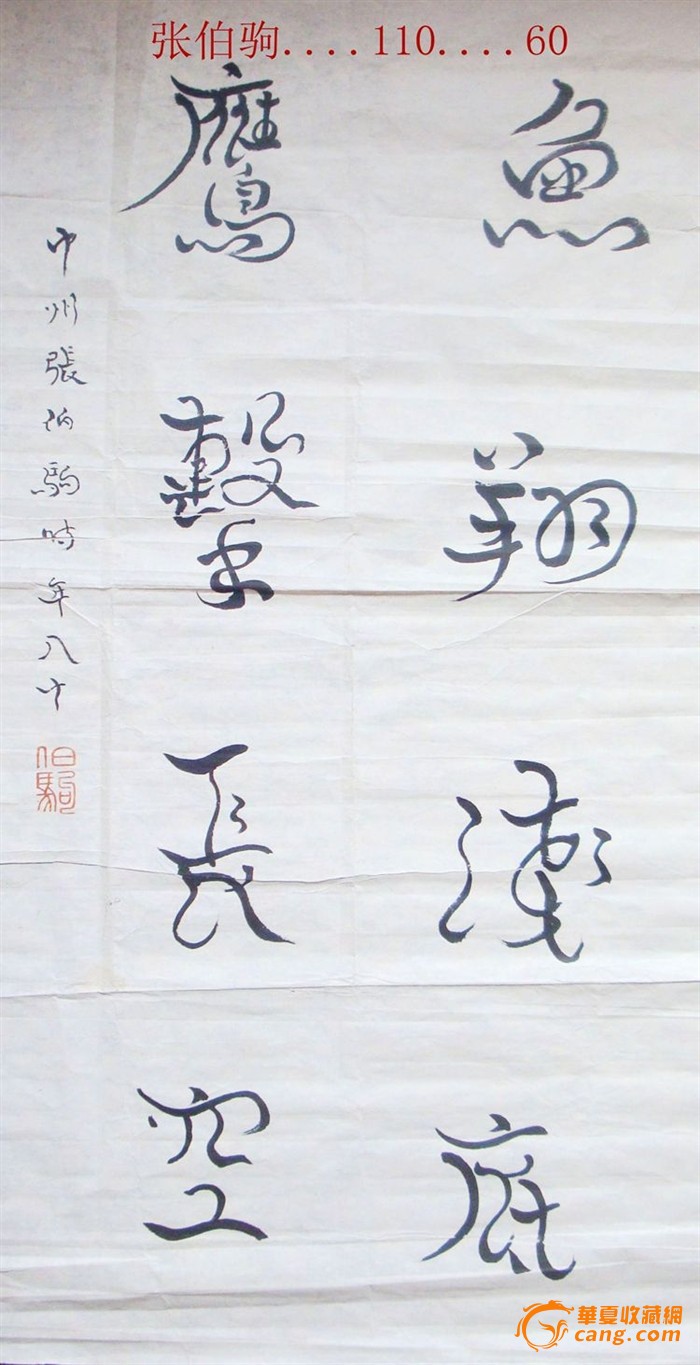 张伯驹....110....60
魚翔淺底
鷹擊長空
中州張伯駒時年八十
伯駒
華夏收藏網
cang.com